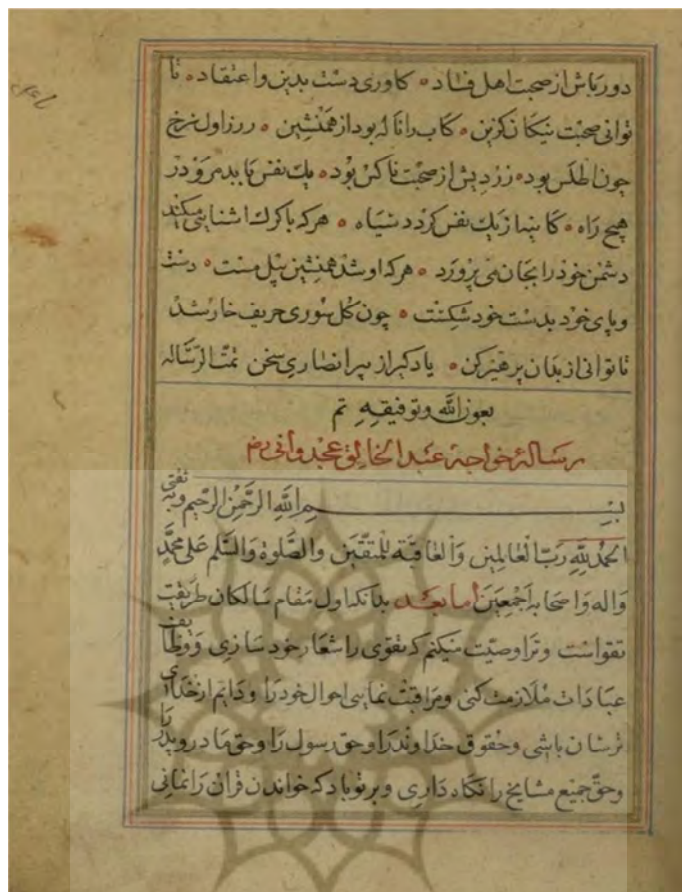 دور باش از صحبت اهل فساد ۰ کاوری دست بدین و اعتقاد ۰ تا
توانی صحبت نیکان کزین ۰ کاب را ناله بود از همنشین ۰ روز اول نرخ
چون اطلس بود ۰ زردیش از صحبت ناکس بود ۰ یک نفس باید مرو در
هیچ راه ۰ کاینه از یک نفس کردد سیاه ۰ هرکه با کرک اشنایی میکند
دشمن خود را بجان می پرورد ۰ هرکه او شد همنشین پیل مست ۰ دست
و پای خود بدست خود شکست ۰ چون کل سوری حریف خار شد
تا توانی از بدان پرهیز کن ۰ یاد کیر از پیر انصاری سخن تمت الرساله
بعون الله و توفیقه تم
رسالهٔ خواجه عبد الخالق غجدوانی رض
بسم الله الرحمن الرحیم وبه ثقتی
الحمد لله رب العالمین والعاقبة للمتقین والصلوة والسلم علی محمد
واله واصحابه اجمعین اما بعد بدانکه اول مقام سالکان طریقت
تقواست و ترا وصیت میکنم که تقوی را شعار خود سازی و وظایف
عبادات ملازمت کنی و مراقبت نمایی احوال خود را و دایم از خدای
ترسان باشی و حقوق خداوند را و حق رسول را و حق مادر و پدر را
و حق جمیع مشایخ را نکاه داری و بر تو باد که خواندن قران را نمانی